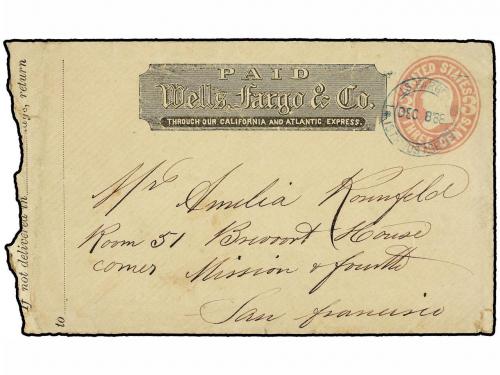 PAID
Wells, Fargo & Co.
THROUGH OUR CALIFORNIA AND ATLANTIC EXPRESS.
UNITED STATES
DEC 8
Amelia Rosenfeld
Room 51 Brevoort House
corner Mission & fourth
San francisco
If not delivered in
return
to